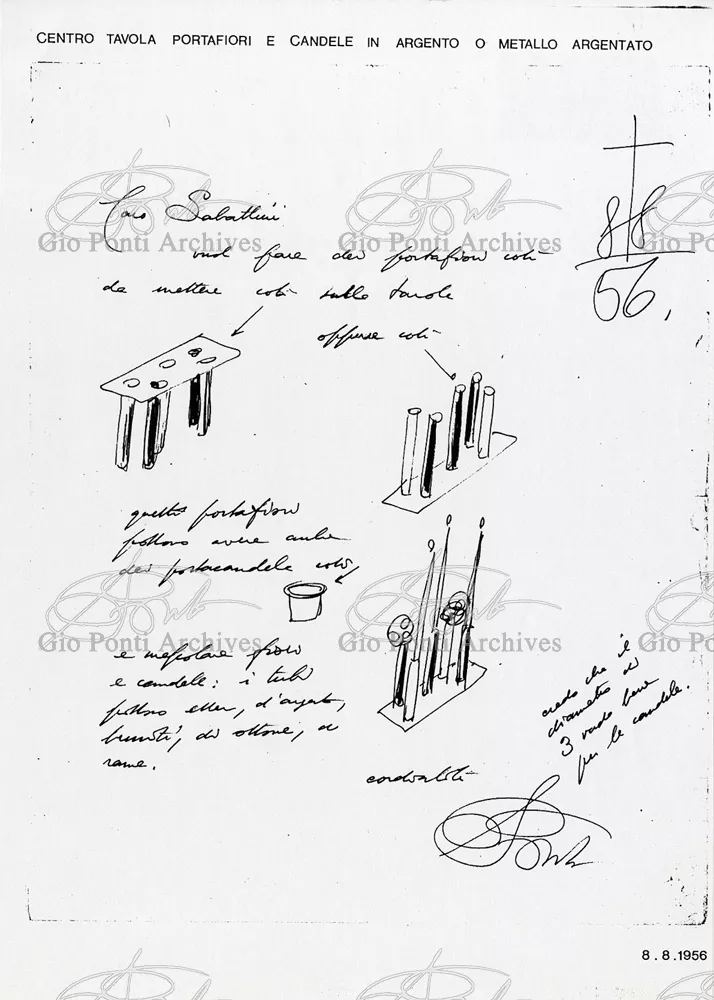 CENTRO TAVOLA PORTAFIORI E CANDELE IN ARGENTO O METALLO ARGENTATO
8/8
56,
Caro Sabattini
vuol fare dei portafiori così
da mettere così sulla tavola
oppure così
questi portafiori
possono avere anche
dei portacandele così
e mescolare fiori
e candele: i tubi
possono esser, d'argento,
bruniti, di ottone, di
rame.
credo che il
diametro di
3 vada bene
per le candele.
cordialità
Ponti
8.8.1956
Gio Ponti Archives
Gio Ponti Archives
Gio Ponti Archives
Gio Ponti Archives